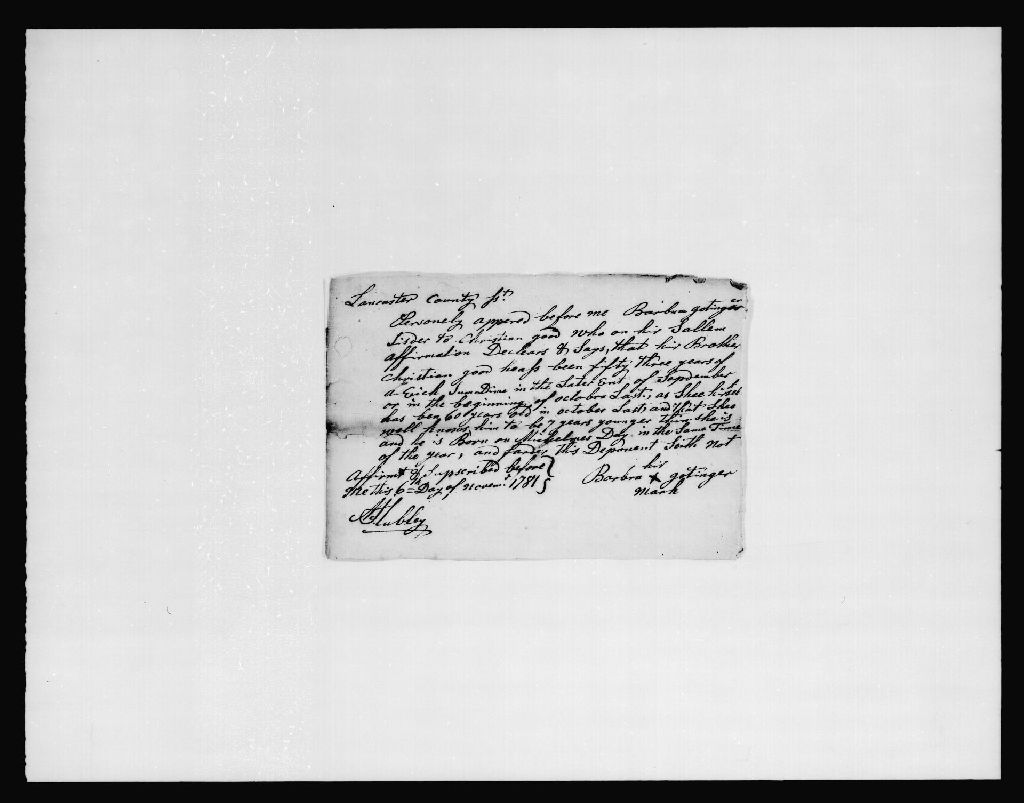 Lancaster County ss.
Personely appered before me Barbra gotinger
Sisder to Christian good who on hir Sallem
affirmation Declears & Says, that hir Brother
Christian good heass been fifty three years of
a Geich Sum Dime in the Later End of Sepdember
or in the beginning of octobre Last, as Shee hirself
has ben 60 years old in october Last, and that Shee
well knows him to be 7 years younger than she is
and he is Born on Michelmes Day in the Same Time
of the year, and farder this Deponent Seith not
Affirmt & Supscribed before
Me this 6th Day of Novemr 1781
hir
Barbra x gotinger
Mark
AHubley